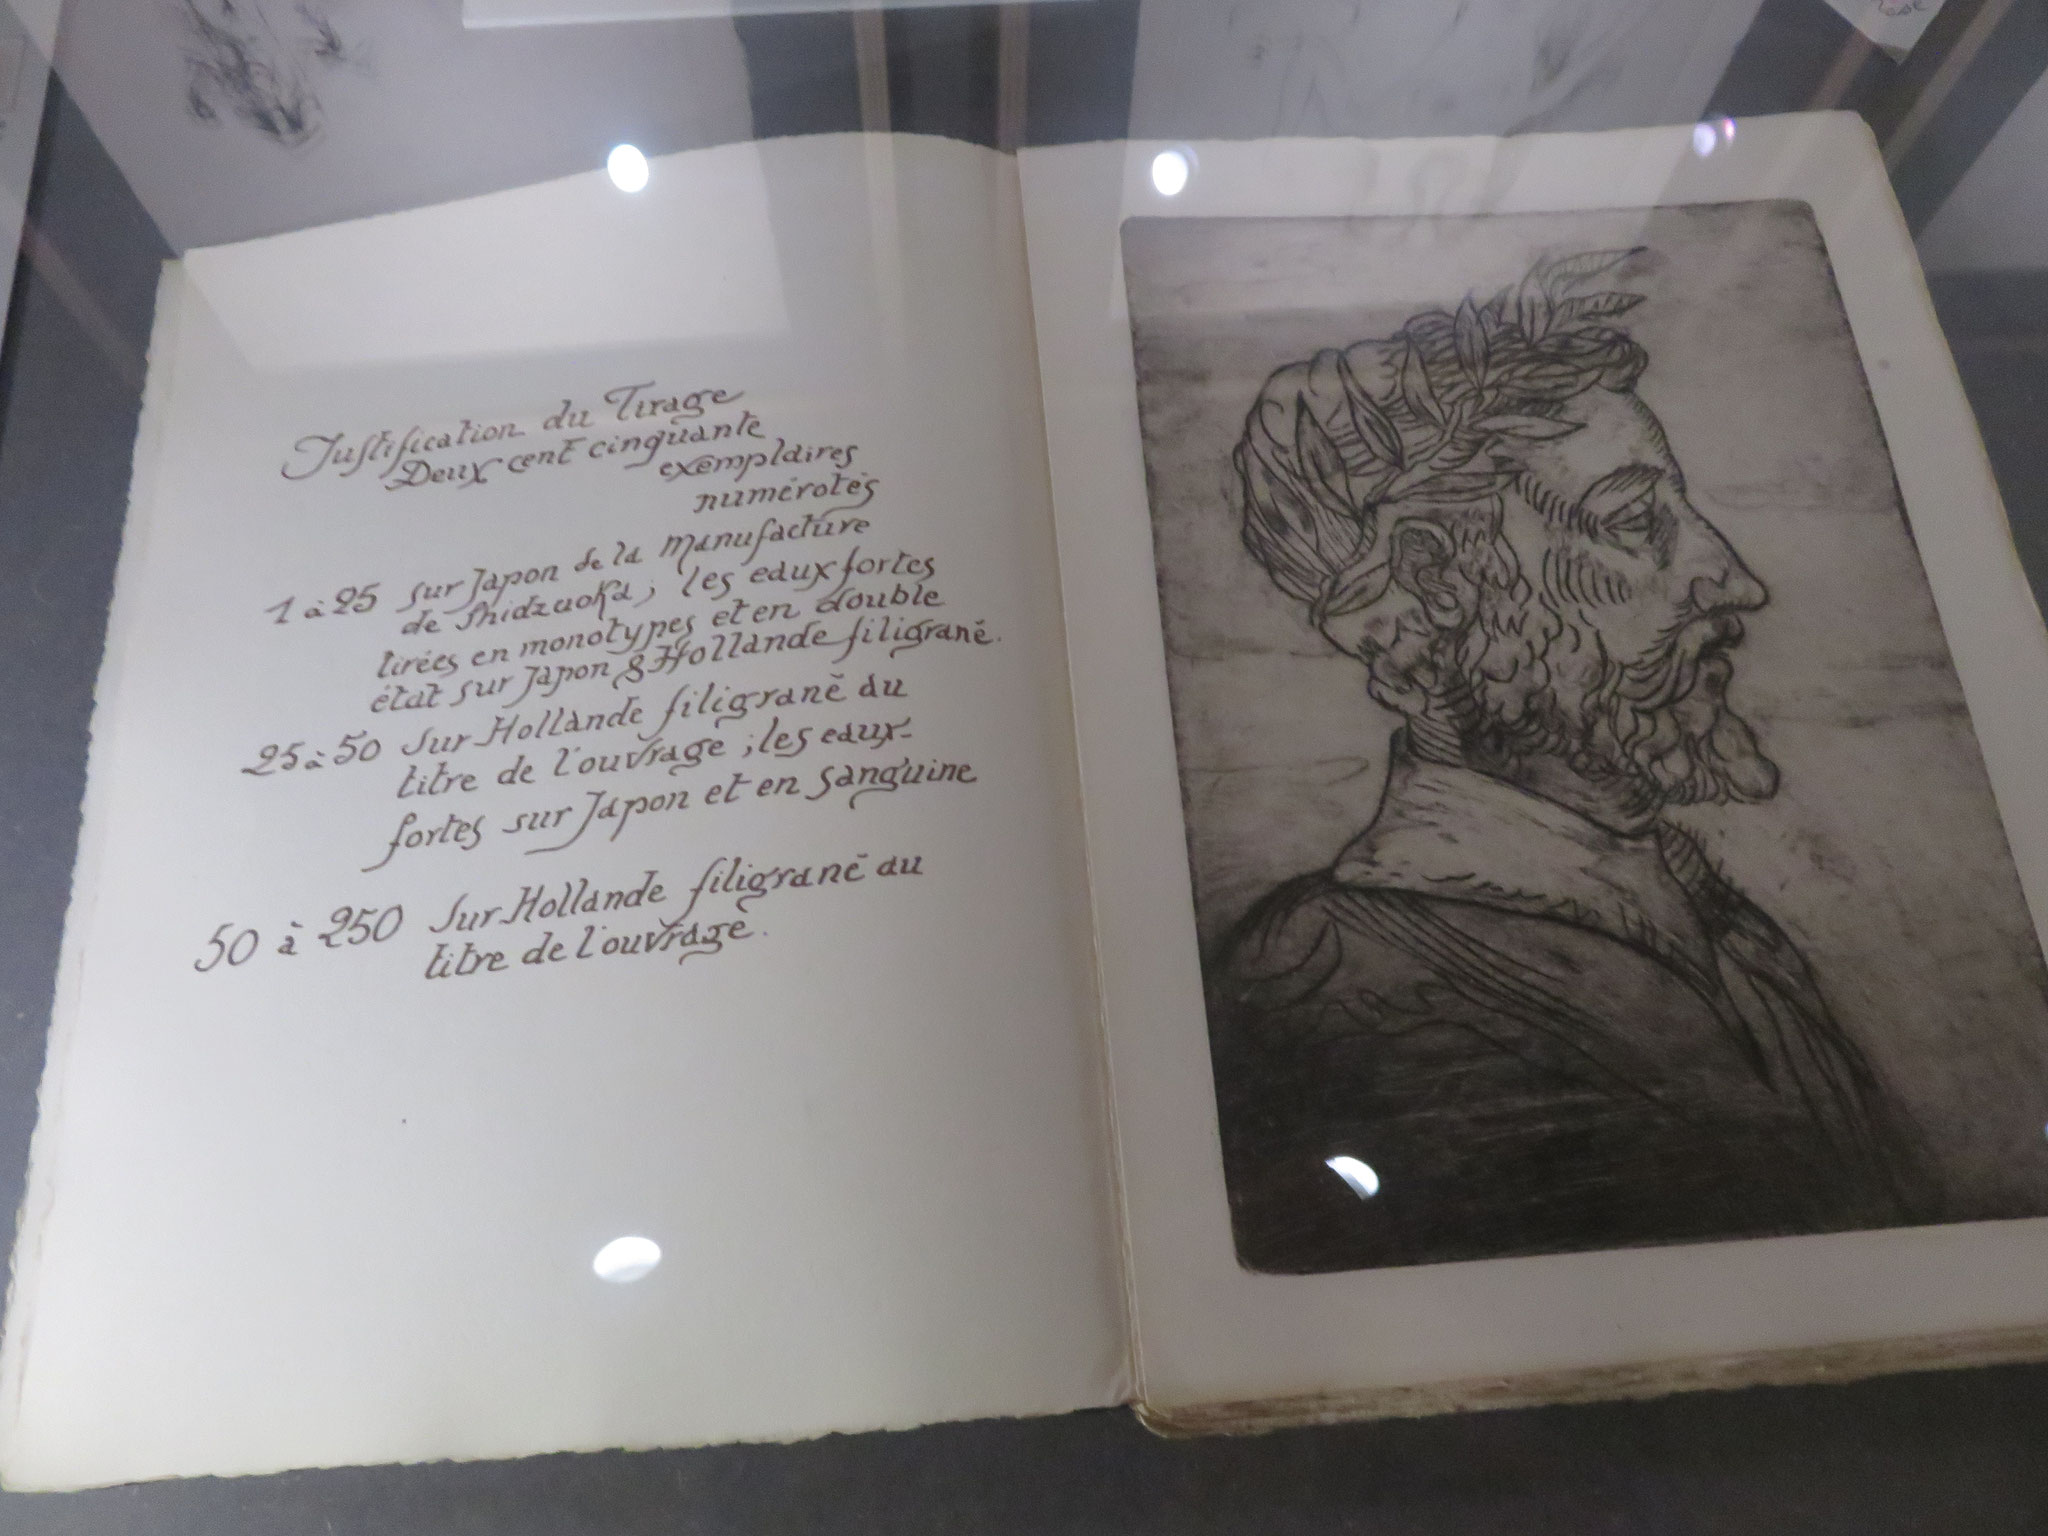 Justification du Tirage
Deux cent cinquante
exemplaires
numérotés
1 à 25 sur Japon de la manufacture
de Shidzuoka; les eaux fortes
tirées en monotypes et en double
état sur Japon & Hollande filigrané.
25 à 50 sur Hollande filigrané du
titre de l'ouvrage; les eaux-
fortes sur Japon et en sanguine
50 à 250 sur Hollande filigrané du
titre de l'ouvrage.